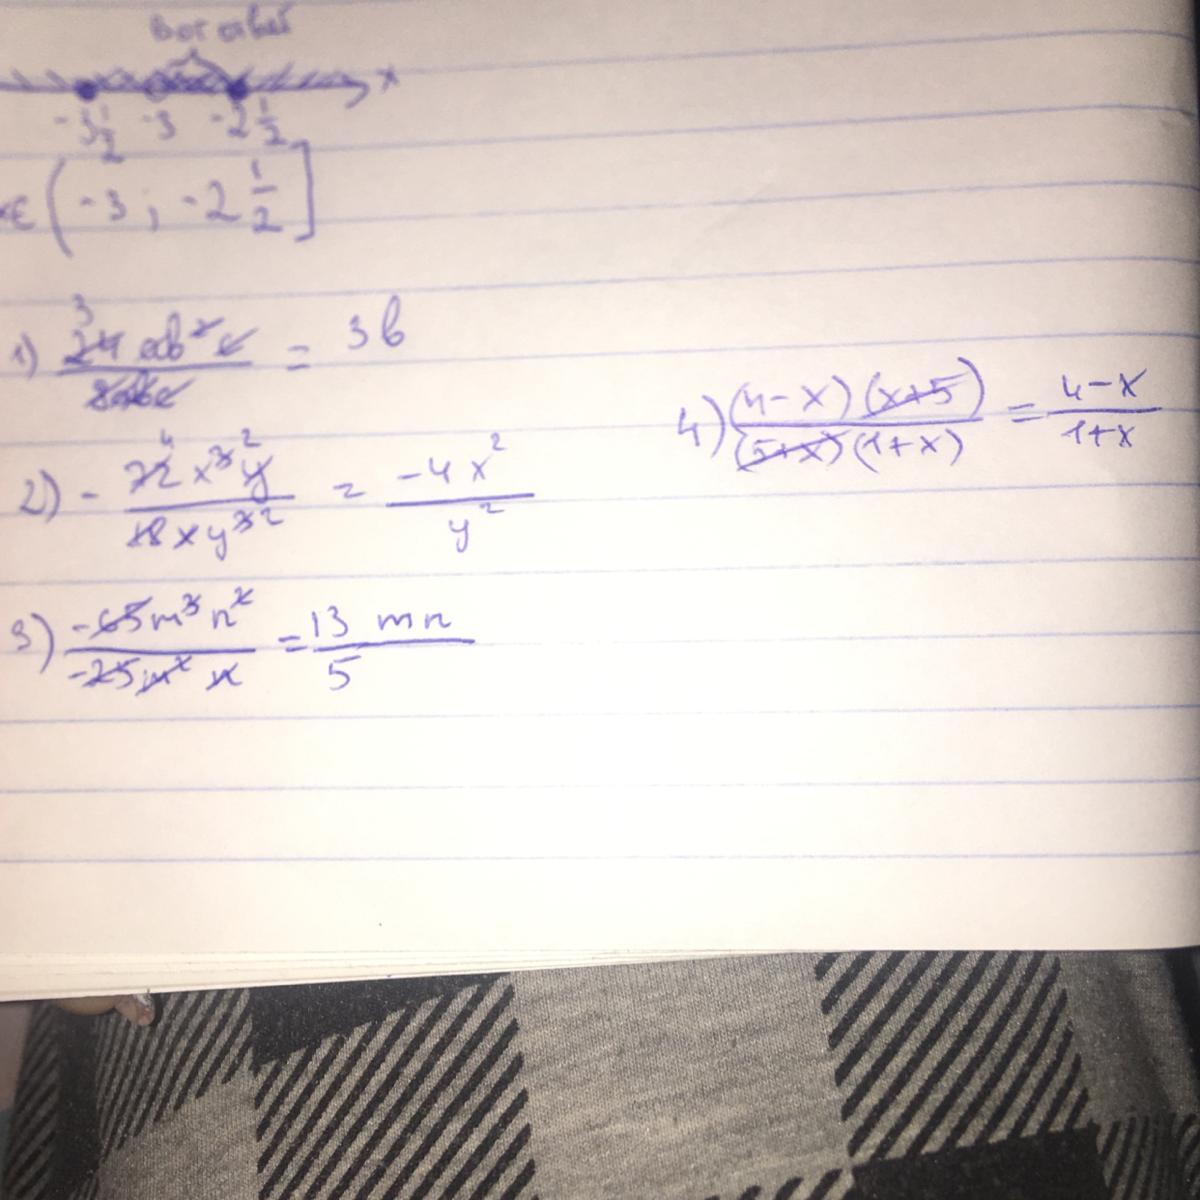 x
-3 1/2 -3 -2 1/2
x∈ (-3; -2 1/2]
1) 24ab²c / 8abc = 3b
3
2) - 72x³y / 18xy³ = -4x² / y²
4 2
2
3) -65m³n² / -25m²n = 13 mn / 5
4) (4-x)(x+5) / (5+x)(1+x) = 4-x / 1+x